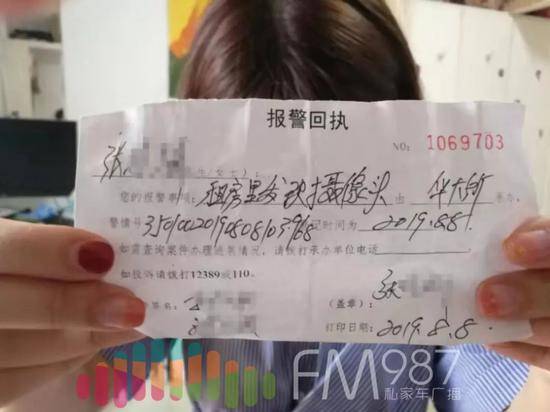 报警回执
NO: 1069703
张 生/女士):
您的报警事项: 租房里发现摄像头 由 华大所 承办,
警情号 记时间为 2019.8.8.
如需查询案件办理进展情况, 请拨打承办单位电话
如投诉请拨打12389或110。
签名: (盖章): 张
打印日期: 2019.8.8.
FM987
私家车广播